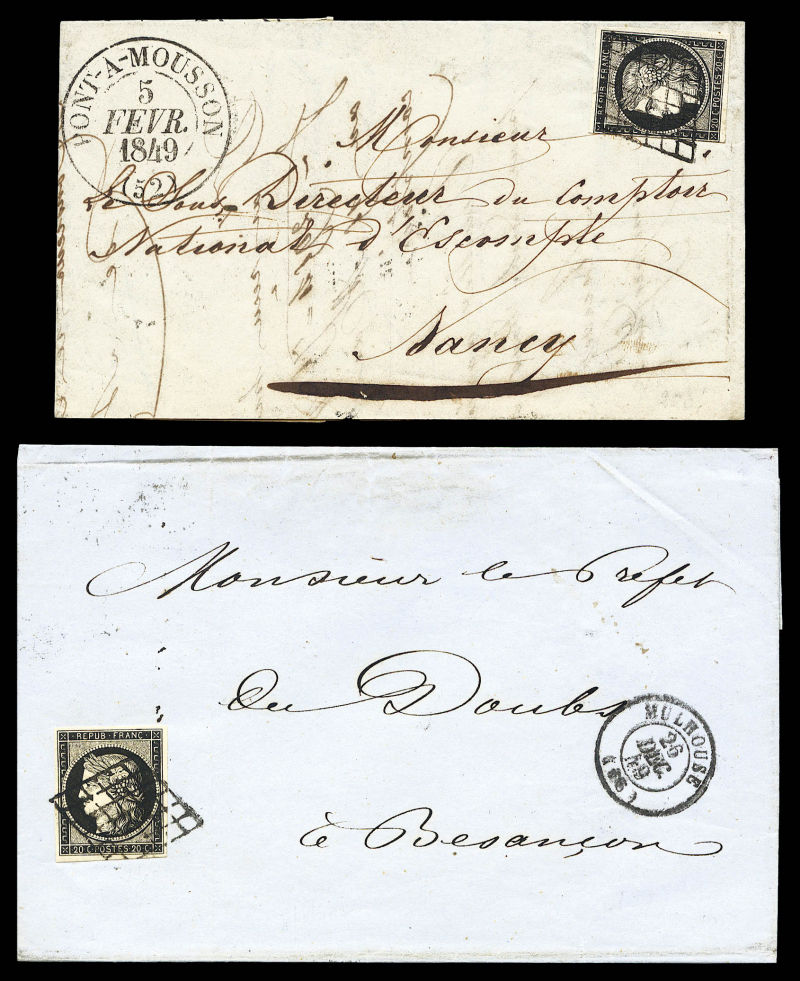 PONT-A-MOUSSON
5
FEVR.
1849
(52)
REPUB FRANC
20 C POSTES 20 C
Monsieur
Le Sous Directeur du Comptoir
National d'Escompte
Nancy
Monsieur le Préfet
du Doubs
à Besançon
REPUB FRANC
20 C POSTES 20 C
MULHOUSE
26
DEC.
49